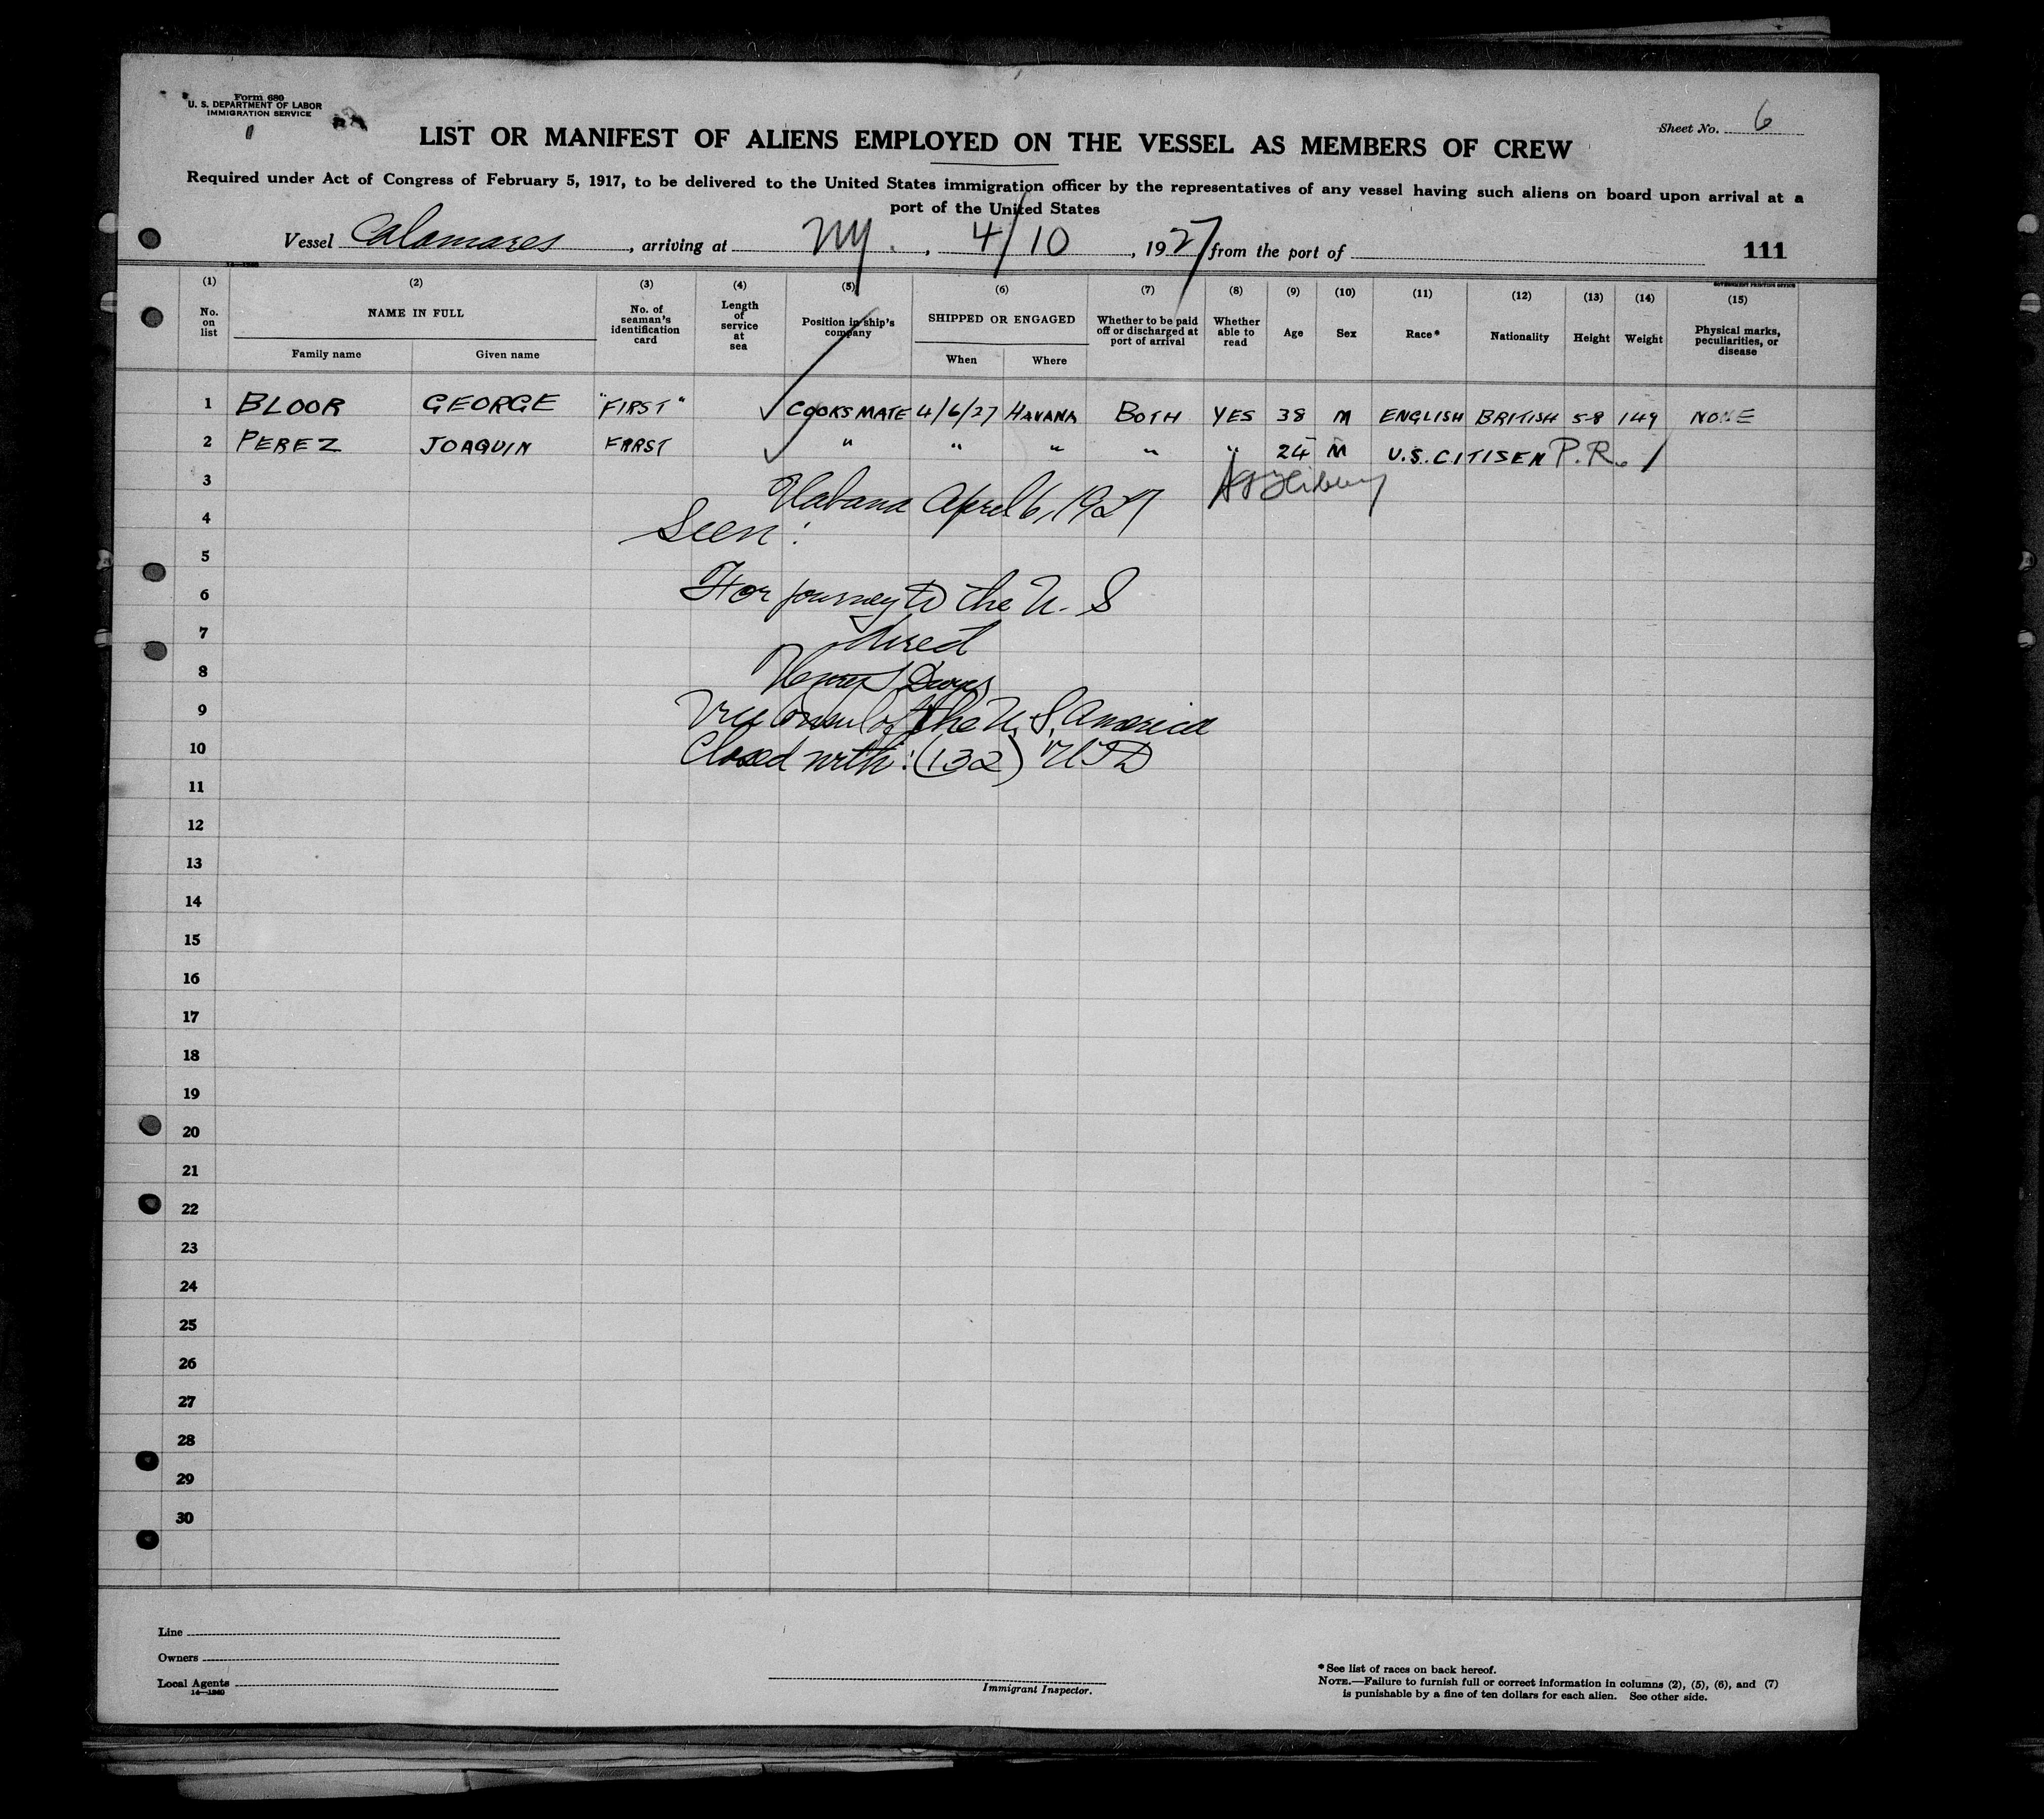 Form 680
U. S. DEPARTMENT OF LABOR
IMMIGRATION SERVICE
Sheet No. 6
LIST OR MANIFEST OF ALIENS EMPLOYED ON THE VESSEL AS MEMBERS OF CREW
Required under Act of Congress of February 5, 1917, to be delivered to the United States immigration officer by the representatives of any vessel having such aliens on board upon arrival at a
port of the United States
Vessel Calamares, arriving at NY., 4/10, 1927 from the port of 111
14—1240
GOVERNMENT PRINTING OFFICE
(1) (2) (3) (4) (5) (6) (7) (8) (9) (10) (11) (12) (13) (14) (15)
No. on list NAME IN FULL No. of seaman's identification card Length of service at sea Position in ship's company SHIPPED OR ENGAGED Whether to be paid off or discharged at port of arrival Whether able to read Age Sex Race* Nationality Height Weight Physical marks, peculiarities, or disease
Family name Given name When Where
1 BLOOR GEORGE "FIRST" COOKS MATE 4/6/27 HAVANA BOTH YES 38 M ENGLISH BRITISH 5-8 149 NONE
2 PEREZ JOAQUIN FIRST " " " " " 24 M U.S. CITISEN P.R.
3
Habana April 6, 1927
4
Seen:
5
6
For journey to the U. S
7
8
9
Vice Consul of the U. S. America
10
Closed with: (132)
11
12
13
14
15
16
17
18
19
20
21
22
23
24
25
26
27
28
29
30
Line
Owners
Local Agents
14—1240
Immigrant Inspector.
* See list of races on back hereof.
NOTE.—Failure to furnish full or correct information in columns (2), (5), (6), and (7)
is punishable by a fine of ten dollars for each alien. See other side.